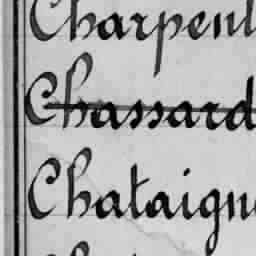 Charpent
Chassard
Chataign